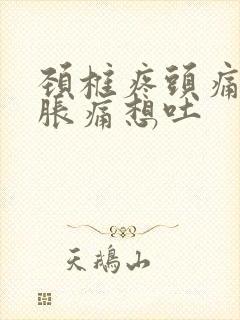 頚椎疼頭痛
脹痛想吐
天鵝山